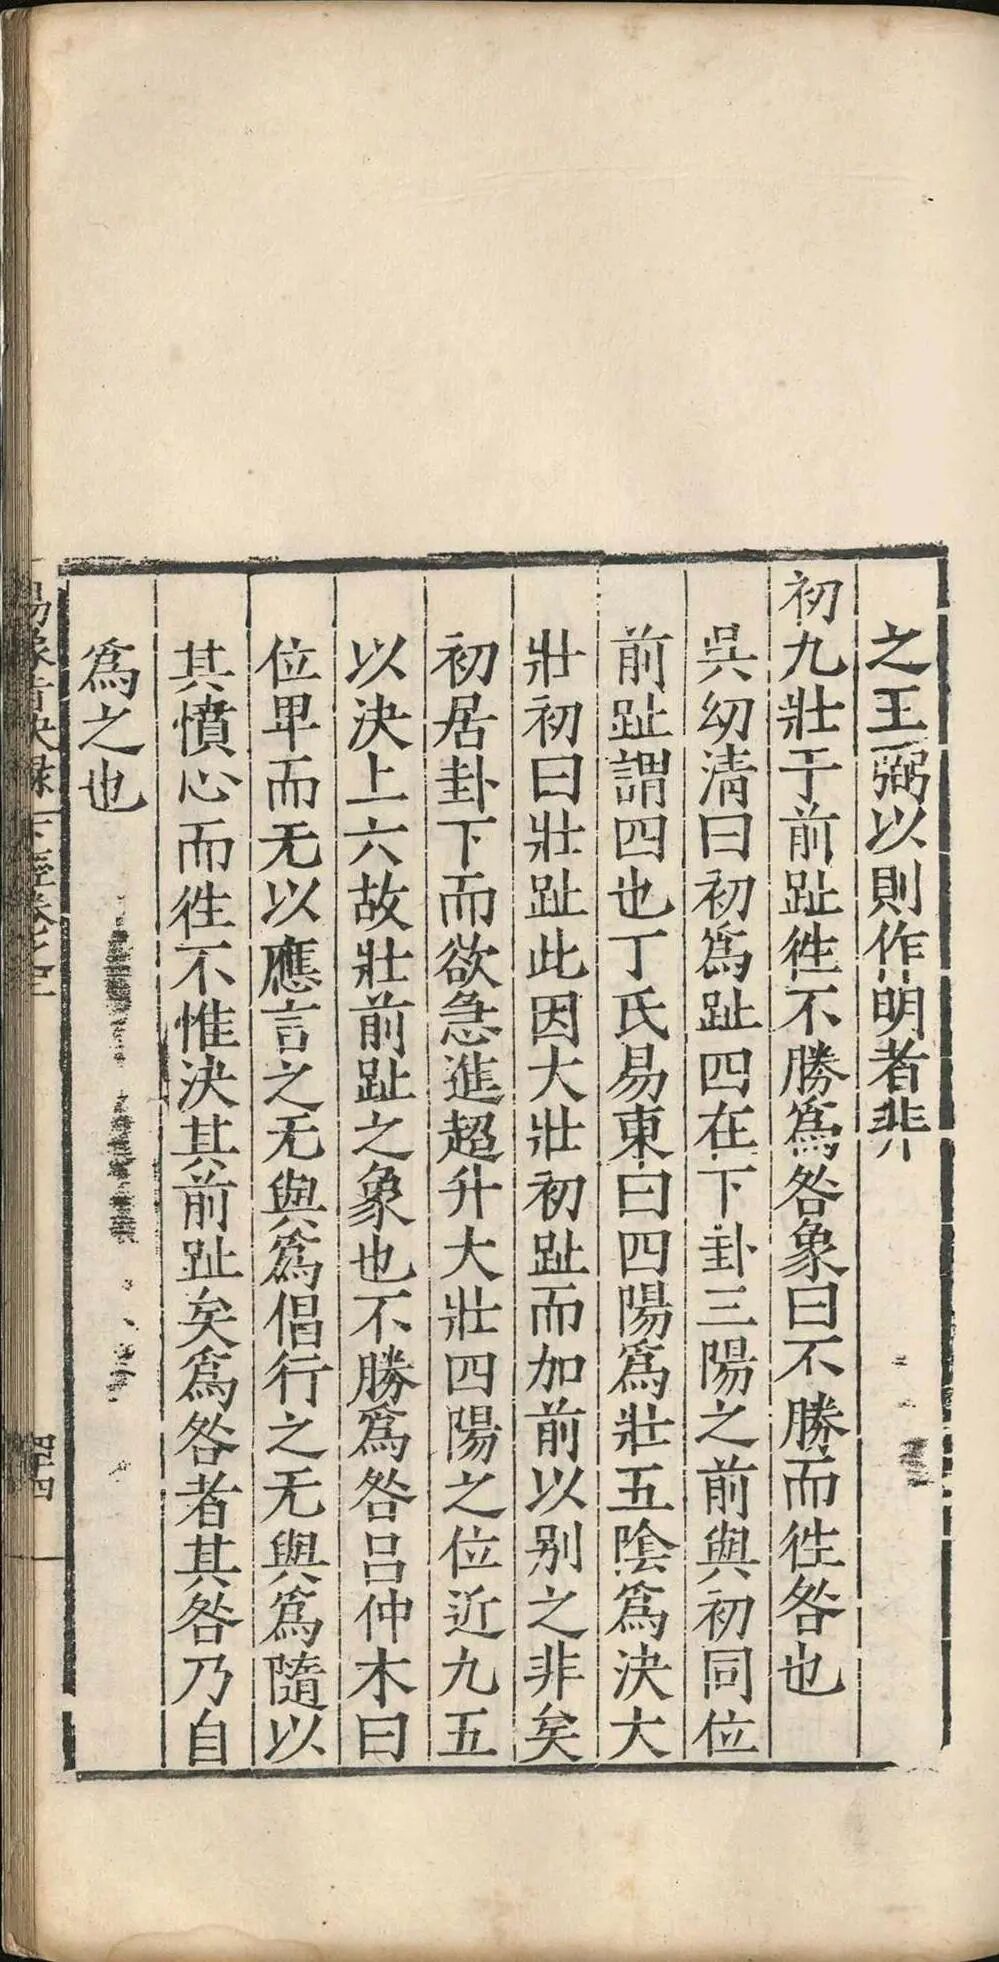 之王弼以則作明者非
初九壯于前趾徃不勝爲咎象曰不勝而徃咎也
吳幼清曰初爲趾四在下卦三陽之前與初同位
前趾謂四也丁氏易東曰四陽爲壯五陰爲決大
壯初曰壯趾此因大壯初趾而加前以别之非矣
初居卦下而欲急進超升大壯四陽之位近九五
以決上六故壯前趾之象也不勝爲咎吕仲木曰
位卑而无以應言之无與爲倡行之无與爲隨以
其憤心而徃不惟決其前趾矣爲咎者其咎乃自
爲之也